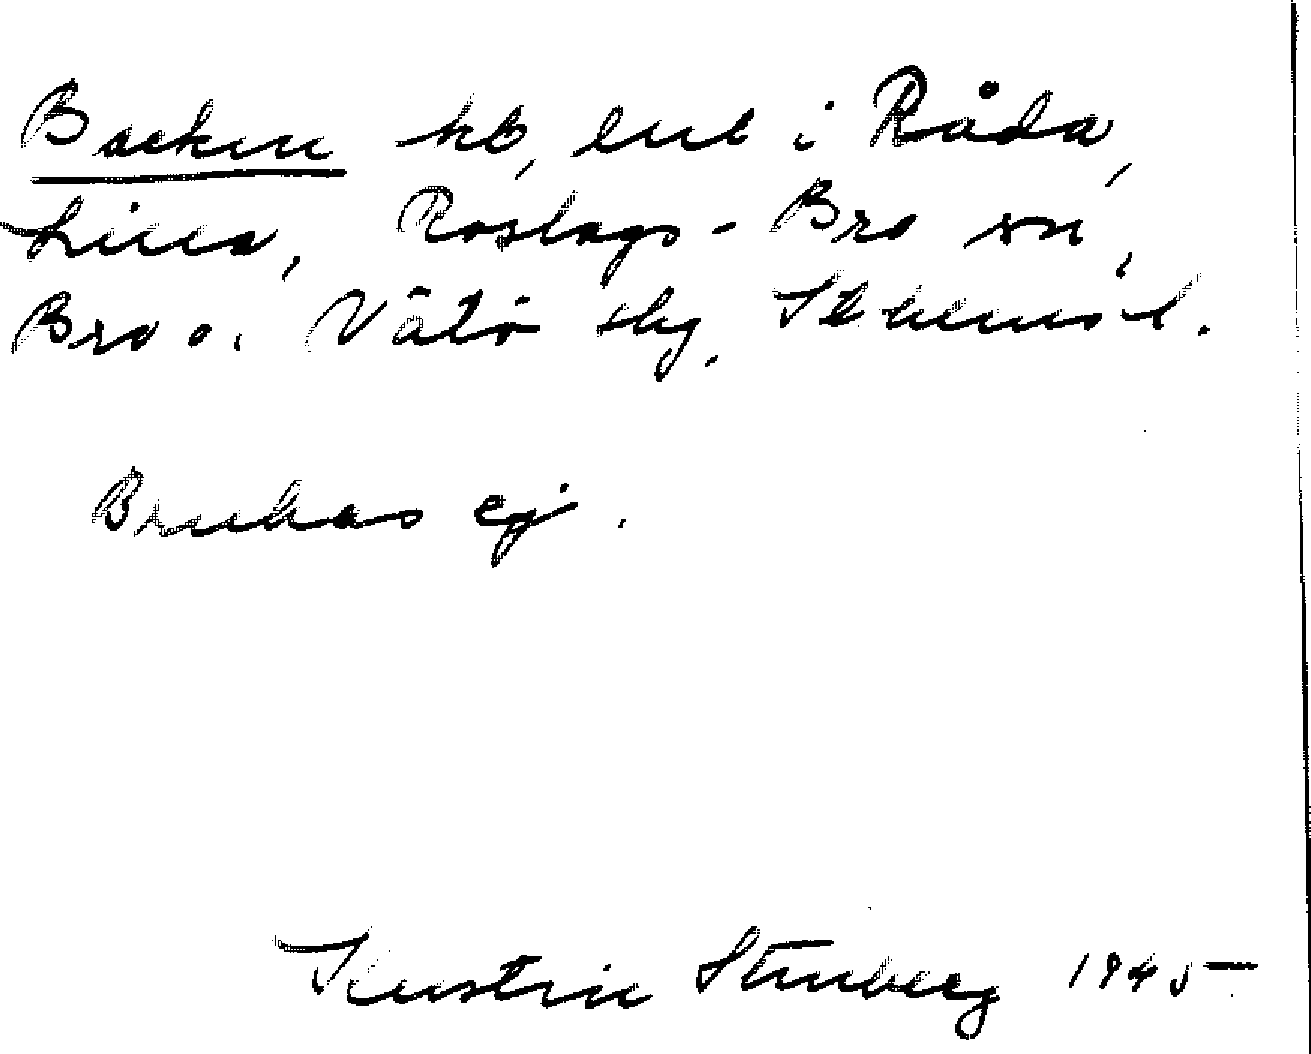 Backen hb, enl i Råda,
Lilla, Roslags-Bro sn,
Bro o. Vätö slg, Sthlms l.
Brukas ej.
Kerstin Stenberg 1945